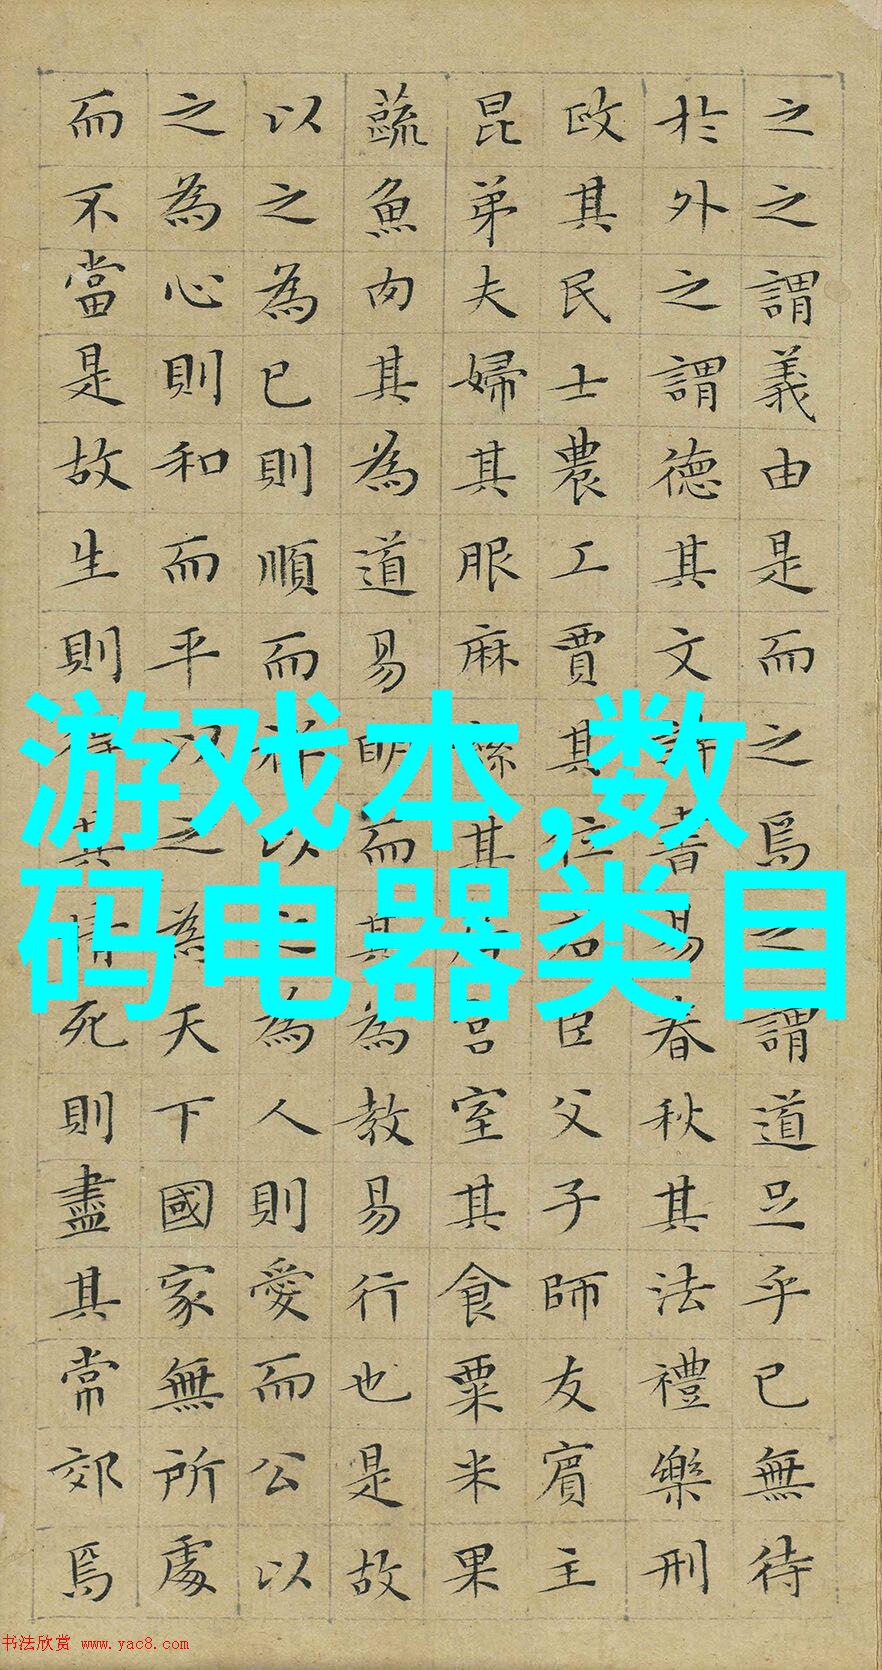 之之謂義由是而之焉之謂道足乎已無待
於外之謂德其文詩書易春秋其法禮樂刑
政其民士農工賈其位君臣父子師友賓主
昆弟夫婦其服麻絲其居宮室其食粟米果
蔬魚肉其為道易明而其為教易行也是故
以之為已則順而祥以之為人則愛而公以
之為心則和而平以之為天下國家無所處
而不當是故生則得其情死則盡其常郊焉
游戏本,数
码电器类目
书法欣赏 www.yac8.com